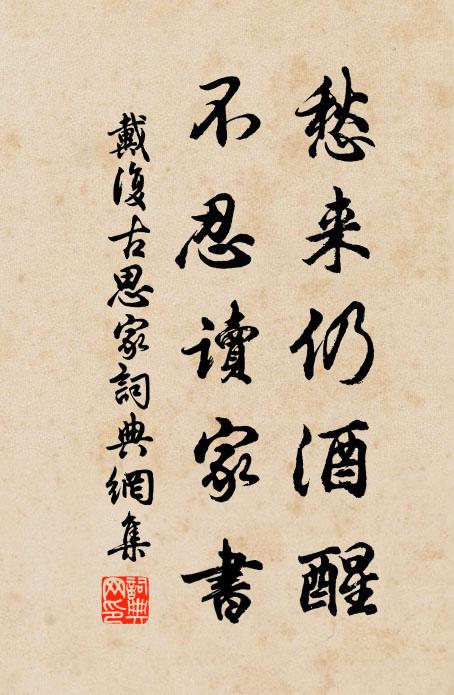 愁来仍酒醒
不忍讀家書
戴復古思家詞典網集
詞典